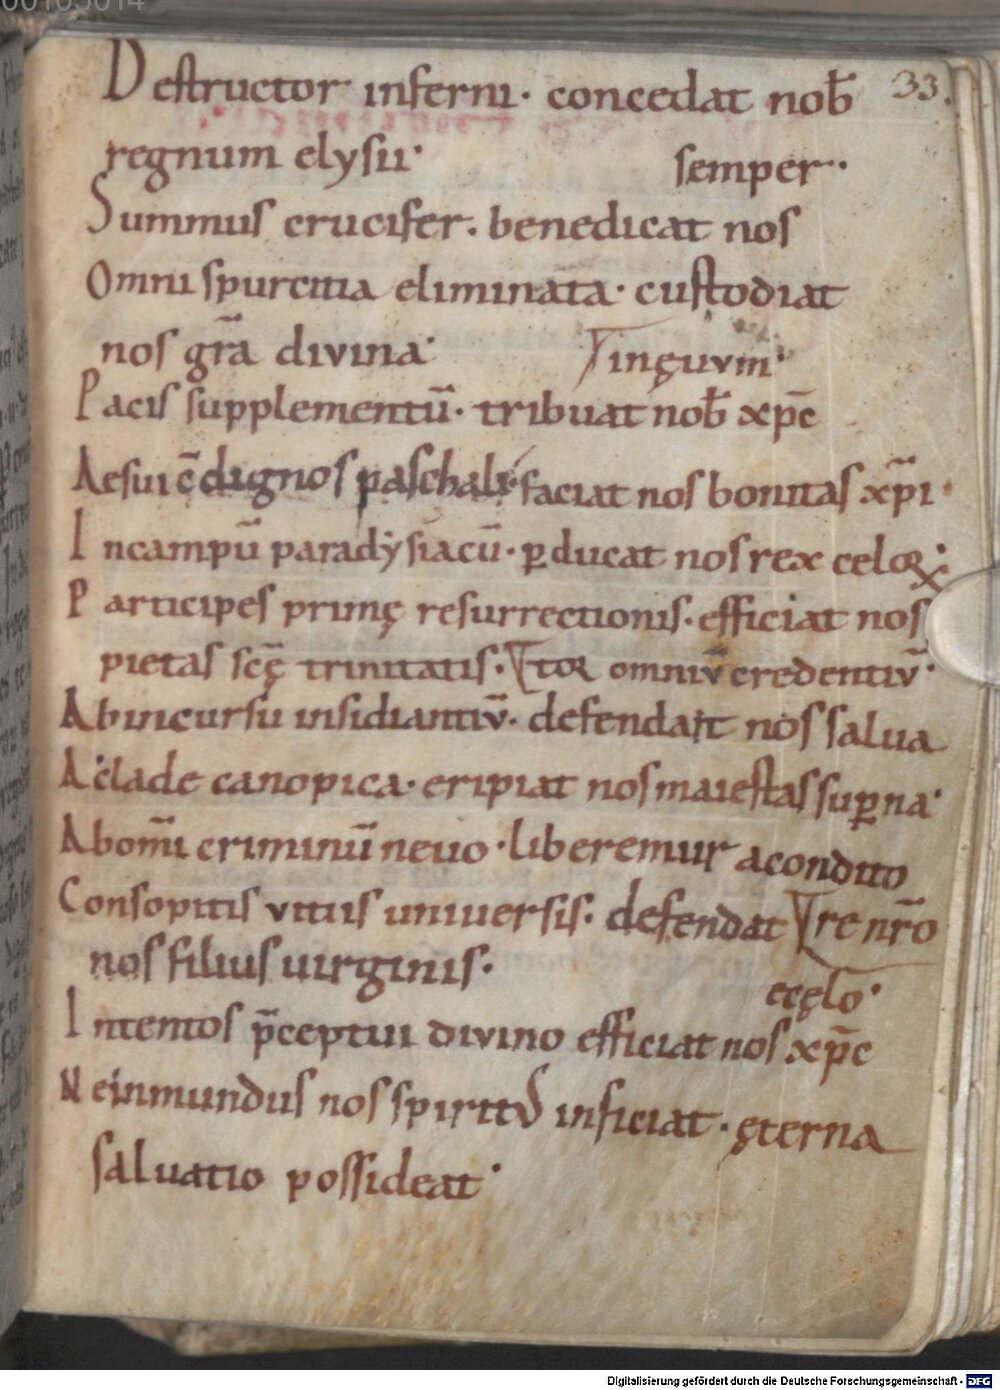 00105014
33.
Destructor inferni· concedat nob̄
regnum elysii· semper·
Summus crucifer. benedicat nos
Omni spurcitia eliminata· custodiat
nos gr̄a divina· inguvin·
Pacis supplementū· tribuat nob̄ xp̄c
Aesui c̄ dignos paschali· faciat nos bonitas xp̄i·
Incampū paradẏsiacū· ꝑducat nos rex celoꝝ·
Participes primę resurrectionis· efficiat nos
pietas scę̄ trinitatis· toꝝ omniv̄ credentiv̄·
Abincursu insidiantiv̄· defendat nos salua
A clade canopica· eripiat nos maiestas suꝑna·
Abom̄i criminū neuo· liberemur a condito
Consopitis vitiis uniuersis· defendat re nr̄o
nos filius uirginis· ecęlo·
Intentos p̄ceptui divino efficiat nos xp̄c
Ne inmundus nos spiritus inficiat· ęterna
saluatio possideat·
Digitalisierung gefördert durch die Deutsche Forschungsgemeinschaft - DFG